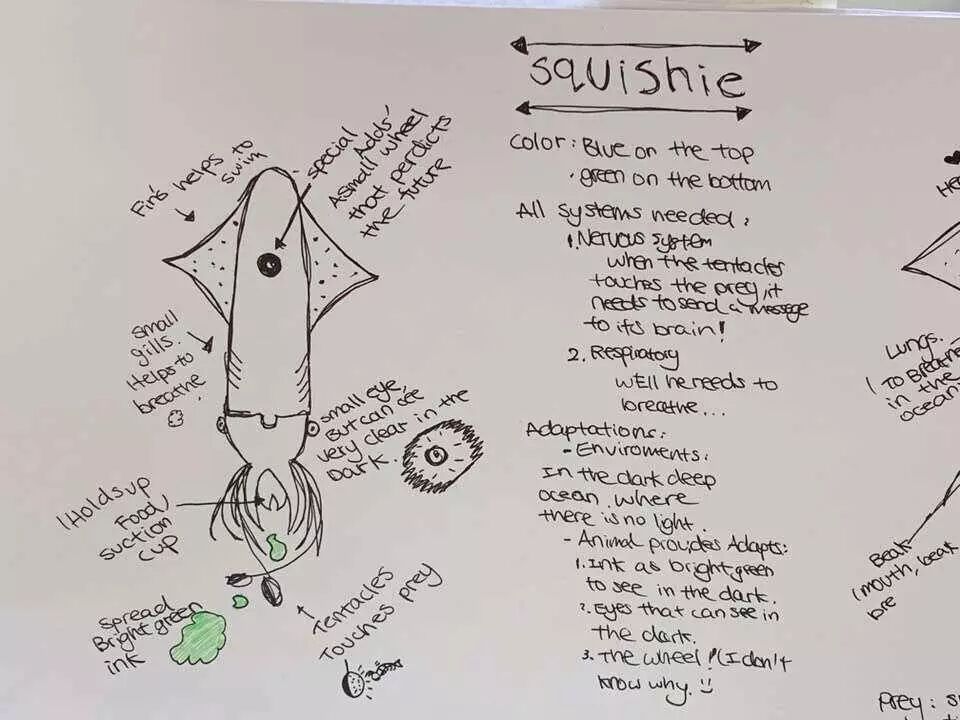 squishie
Fin's helps to
swim
special
Adds'
A small wheel
that perdicts
the future
small
gills.
Helps to
breathe.
small eye,
But can see
very clear in the
Dark.
Holds up
Food,
suction
cup
Spread
Bright green
ink
Tentacles
Touches prey
Color: Blue on the top
. green on the bottom
All systems needed:
1. Nervous system
when the tentacles
touches the prey, it
needs to send a message
to its brain!
2. Respiratory
well he needs to
breathe...
Adaptations:
- Enviroments:
In the dark deep
ocean where
there is no light.
- Animal provides Adapts:
1. Ink as bright green
to see in the dark.
2. Eyes that can see in
the dark.
3. The wheel! (I don't
know why. :)
He
Lungs.
(To Breathe
in the
ocean
Beak
(mouth, beak
bre
Prey: s